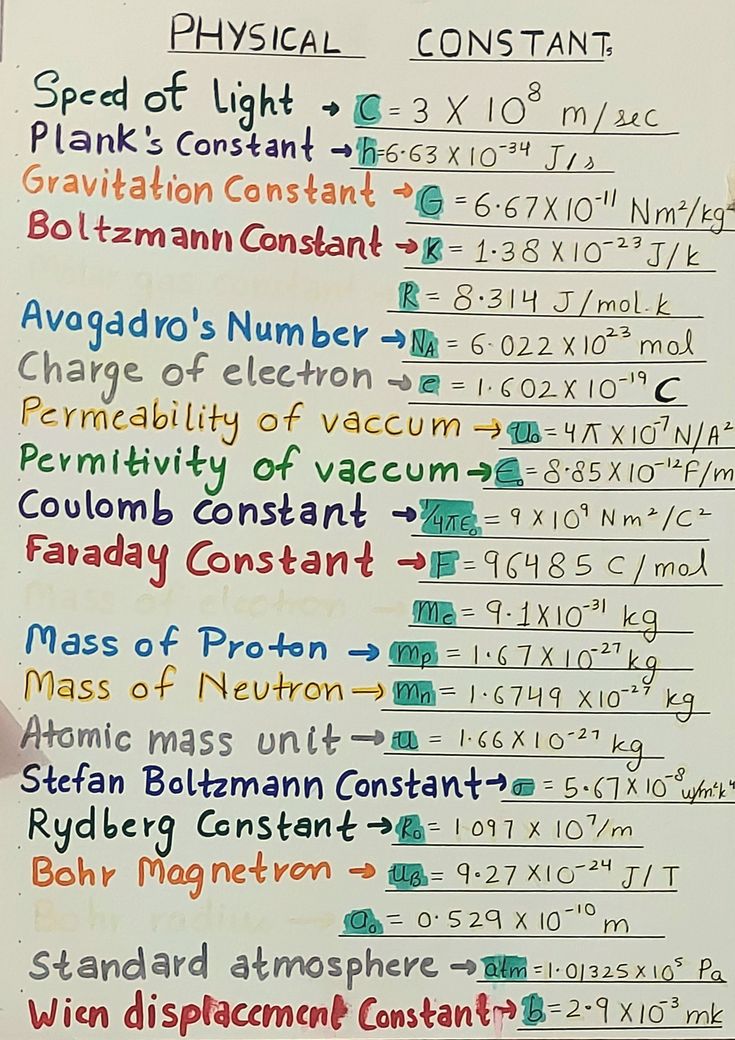 PHYSICAL CONSTANTs
Speed of light → C = 3 X 10⁸ m/sec
Plank's Constant → h=6.63 X 10⁻³⁴ J/s
Gravitation Constant → G = 6.67X10⁻¹¹ Nm²/kg²
Boltzmann Constant → K = 1.38 X10⁻²³ J/k
Molar gas constant → R = 8.314 J/mol.k
Avogadro's Number → NA = 6.022 X 10²³ mol
Charge of electron → e = 1.602X 10⁻¹⁹ C
Permeability of vaccum → u₀ = 4π X10⁻⁷ N/A²
Permitivity of vaccum → ε₀ = 8.85X10⁻¹² F/m
Coulomb constant → 1/4πε₀ = 9 X 10⁹ Nm²/C²
Faraday Constant → F = 96485 C/mol
Mass of electron → me = 9.1X10⁻³¹ kg
Mass of Proton → mp = 1.67X10⁻²⁷ kg
Mass of Neutron → mn = 1.6749 X10⁻²⁷ kg
Atomic mass unit → u = 1.66X10⁻²⁷ kg
Stefan Boltzmann Constant → σ = 5.67X10⁻⁸ w/m²k⁴
Rydberg Constant → R₀ = 1.097 X 10⁷/m
Bohr Magnetron → uB = 9.27X10⁻²⁴ J/T
Bohr radius → a₀ = 0.529 X 10⁻¹⁰ m
Standard atmosphere → atm = 1.01325 X10⁵ Pa
Wien displacement Constant → b = 2.9 X10⁻³ mk